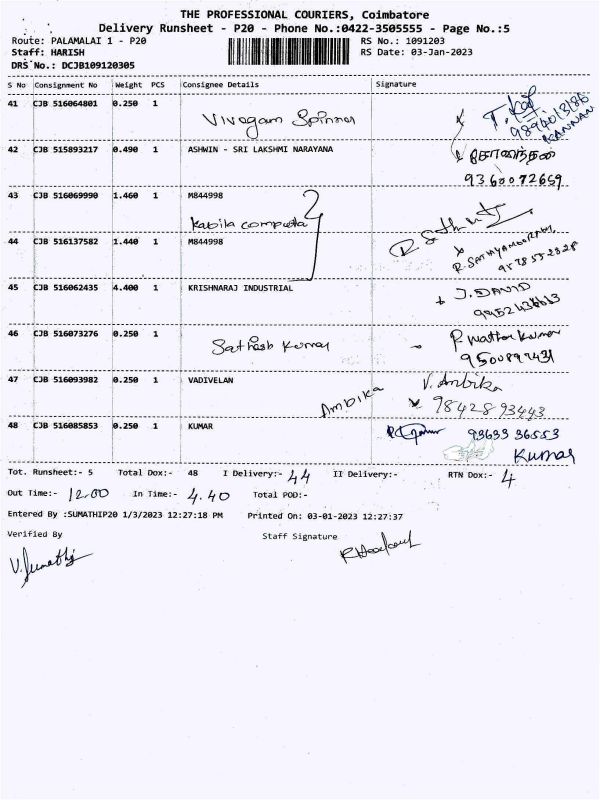 THE PROFESSIONAL COURIERS, Coimbatore
Delivery Runsheet - P20 - Phone No.:0422-3505555 - Page No.:5
Route: PALAMALAI 1 - P20 RS No.: 1091203
Staff: HARISH RS Date: 03-Jan-2023
DRS No.: DCJB109120305
S No Consignment No Weight PCS Consignee Details Signature
41 CJB 516064801 0.250 1 Vivagam Spinner
KANNAN
42 CJB 515893217 0.490 1 ASHWIN - SRI LAKSHMI NARAYANA
கோவிந்தன்
9360072659
43 CJB 516069990 1.460 1 M844998
Kabila computer
44 CJB 516137582 1.440 1 M844998
R. SATHYAMOORTHY,
45 CJB 516062435 4.400 1 KRISHNARAJ INDUSTRIAL J. DAVID
46 CJB 516073276 0.250 1 Sathish Kumar
47 CJB 516093982 0.250 1 VADIVELAN Ambika V. Ambika
98428 93443
48 CJB 516085853 0.250 1 KUMAR 93633 36553
Kumar
Tot. Runsheet:- 5 Total Dox:- 48 I Delivery:- 44 II Delivery:- RTN Dox:- 4
Out Time:- 12.00 In Time:- 4.40 Total POD:-
Entered By :SUMATHIP20 1/3/2023 12:27:18 PM Printed On: 03-01-2023 12:27:37
Verified By Staff Signature
V. Sumathi